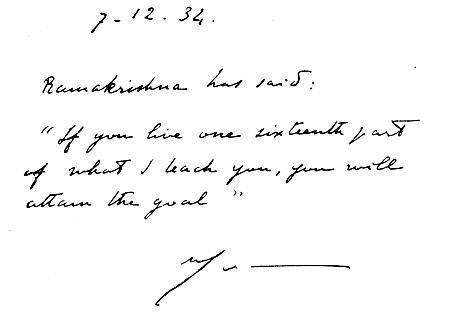 7-12.34.
Ramakrishna has said:
"If you live one sixteenth part
of what I teach you, you will
attain the goal"